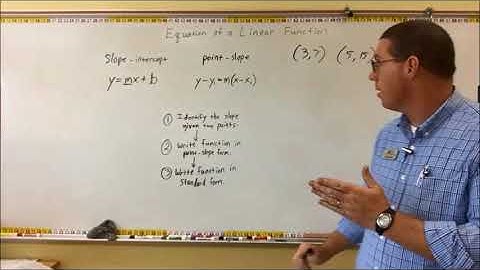 Equation of a Linear Function
Slope-intercept
y = mx + b
point-slope
y - y₁ = m(x - x₁)
(3,7) (5,15
① Identify the slope
given two points.
② Write function in
point-slope form.
③ Write function in
standard form.